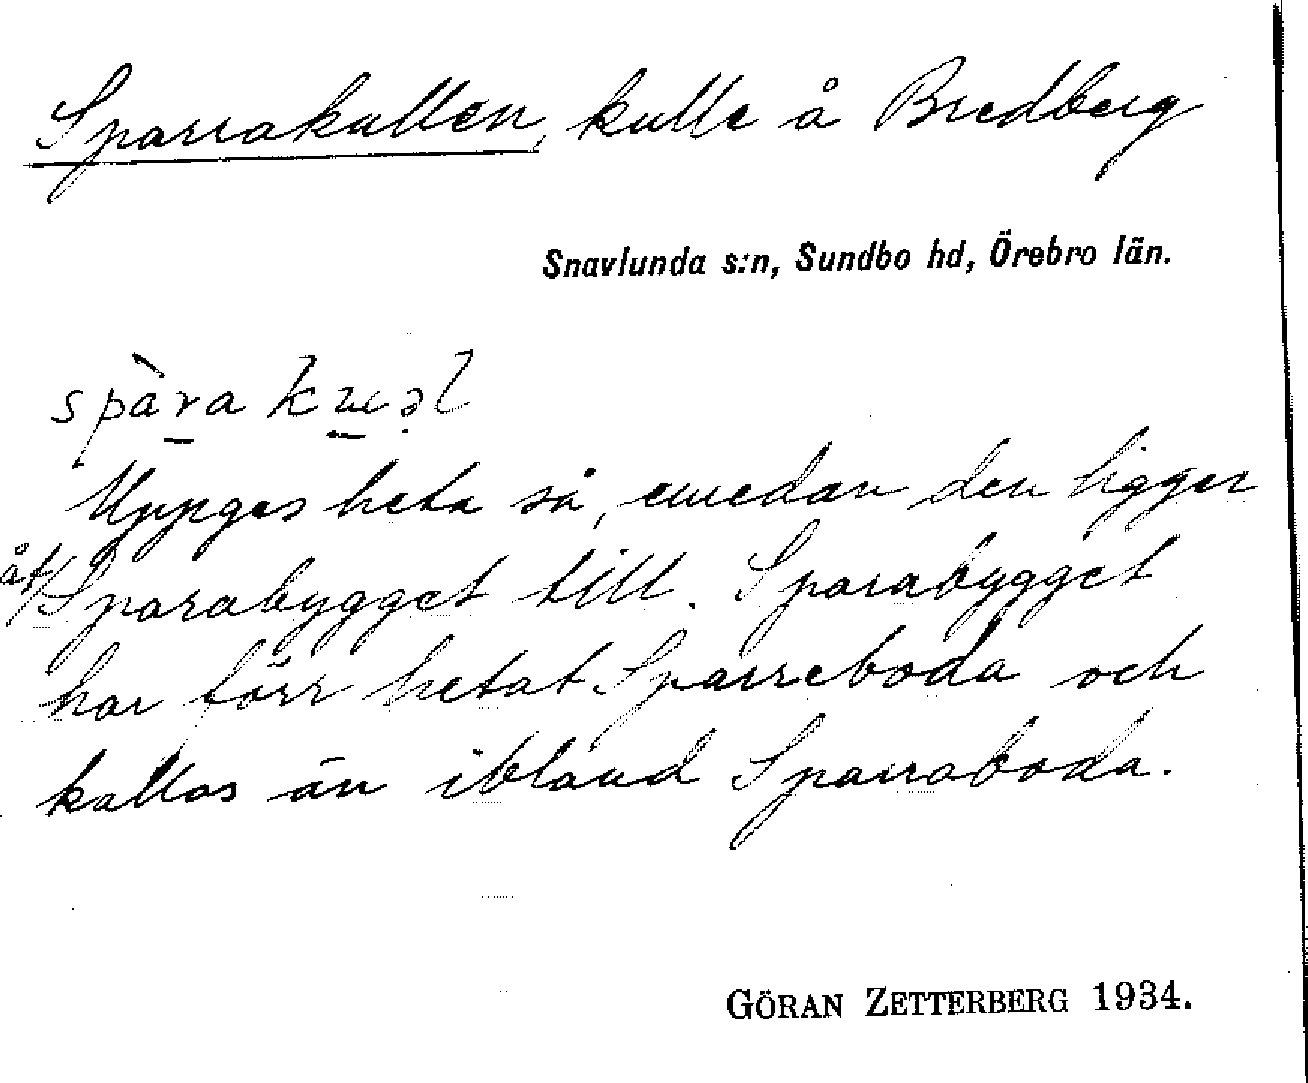 Sparrakullen, kulle å Bredberg
Snavlunda s:n, Sundbo hd, Örebro län.
spàra
Uppges heta så, emedan den ligger
åt/ Sparabygget till. Sparabygget
har förr hetat Sparreboda och
kallas än ibland Sparraboda.
GÖRAN ZETTERBERG 1934.